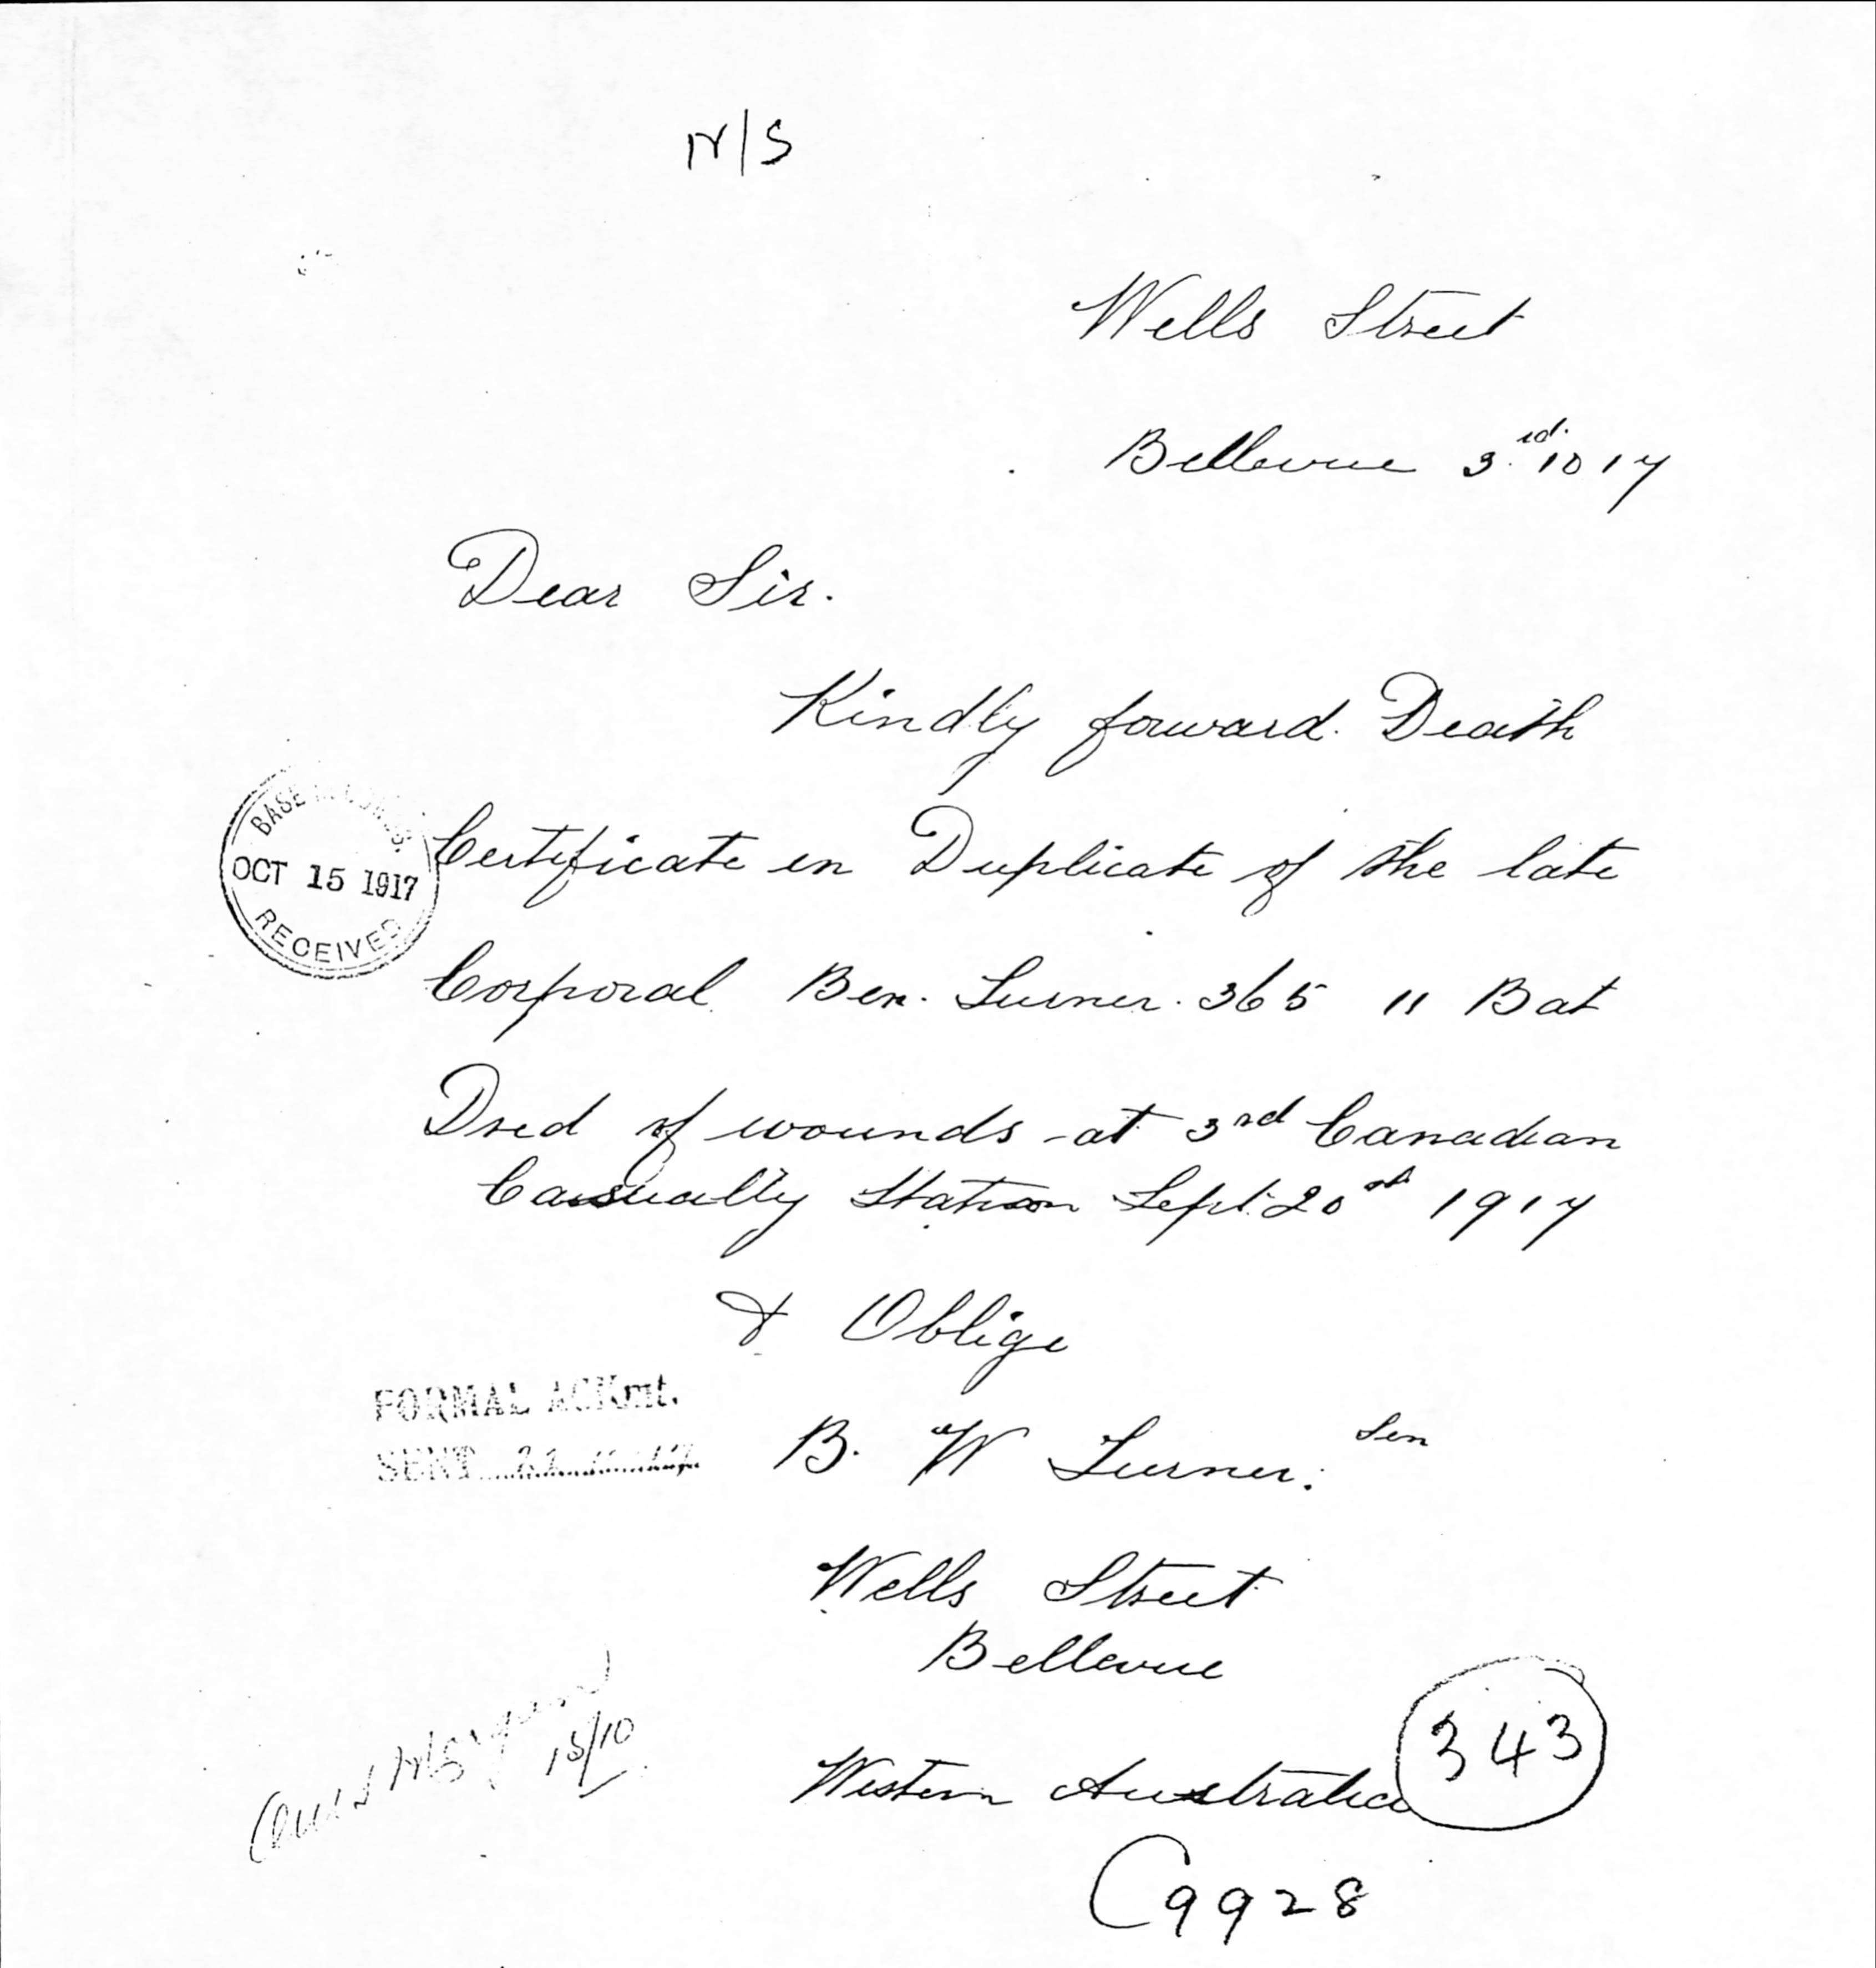 N/S
Wells Street
Bellevue 3rd. 10 17
Dear Sir.
Kindly forward. Death
Certificate in Duplicate of the late
Corporal Ben. Turner. 365 11 Bat
Died of wounds at 3rd Canadian
Casualty Station Sept. 20th 1917
& Oblige
B. W Turner. Sen
Wells Street
Bellevue
Western Australia
BASE RECORDS.
OCT 15 1917
RECEIVED
FORMAL ACKmt.
SENT
15/10
343
C9928